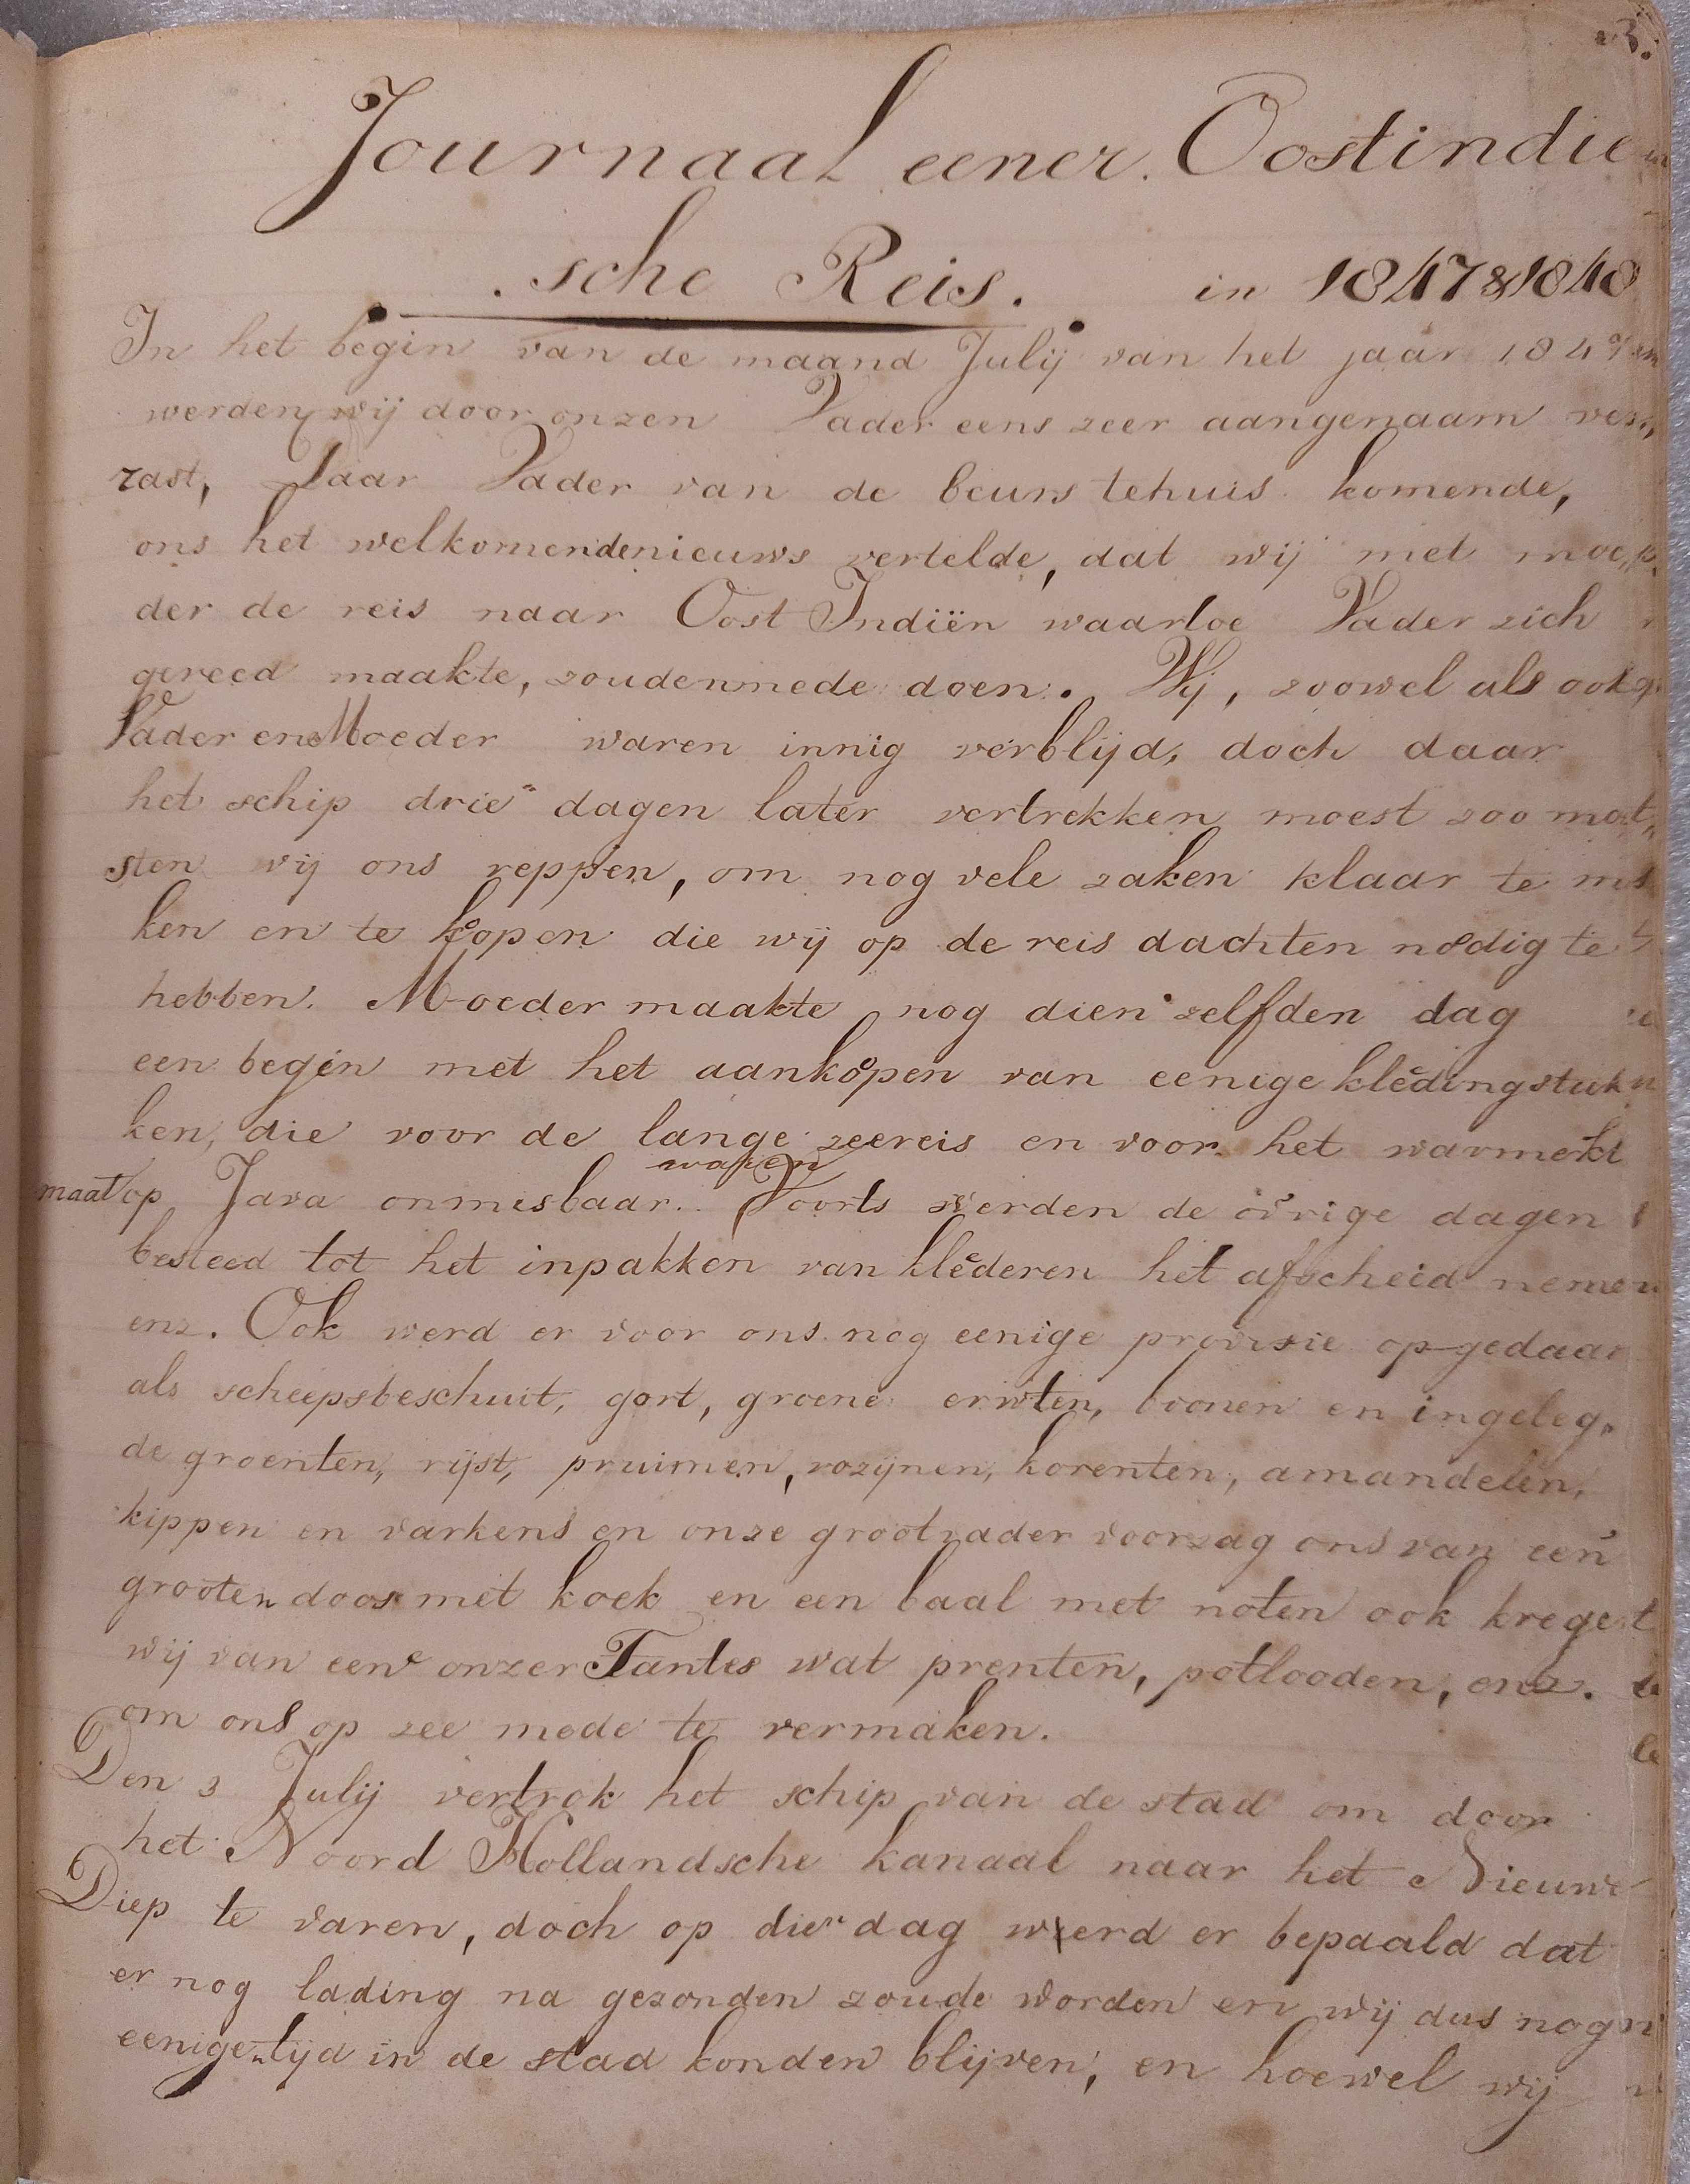 3.
Journaal eener Oostindie
sche Reis. in 1847 & 1848
In het begin van de maand Julij van het jaar 1847
werden wij door onzen Vader eens zeer aangenaam ver„
rast, Daar Vader van de beurs tehuis komende,
ons het welkomende nieuws vertelde, dat wij met moe„
der de reis naar Oost Indiën waartoe Vader zich
gereed maakte, zouden mede doen. Wij, zoowel als ook
Vader en Moeder waren innig verblijd, doch daar
het schip drie dagen later vertrekken moest zoo moe„
sten wij ons reppen, om nog vele zaken klaar te ma
ken en te kopen die wij op de reis dachten nodig te
hebben. Moeder maakte nog dien zelfden dag
een begin met het aankopen van eenige kledingstuk
ken, die voor de lange zeereis en voor het warme kli
waren
maat op Java onmisbaar. Voorts werden de ovrige dagen
besteed tot het inpakken van klederen het afscheid nemen
enz. Ook werd er voor ons nog eenige provisie op gedaan
als scheepsbeschuit, gort, groene erwten, boonen en ingeleg„
de groenten, rijst, pruimen, rozijnen, korenten, amandelen,
kippen en varkens en onze grootvader voorzag ons van een
grooten doos met koek en een baal met noten ook krege
wij van eene onzer Tantes wat prenten, potlooden, enz.
om ons op zee mede te vermaken.
Den 3 Julij vertrok het schip van de stad om door
het Noord Hollandsche kanaal naar het Nieuwe
Diep te varen, doch op dien dag werd er bepaald dat
er nog lading na gezonden zoude worden en wij dus nog
eenigen tijd in de stad konden blijven, en hoewel wij